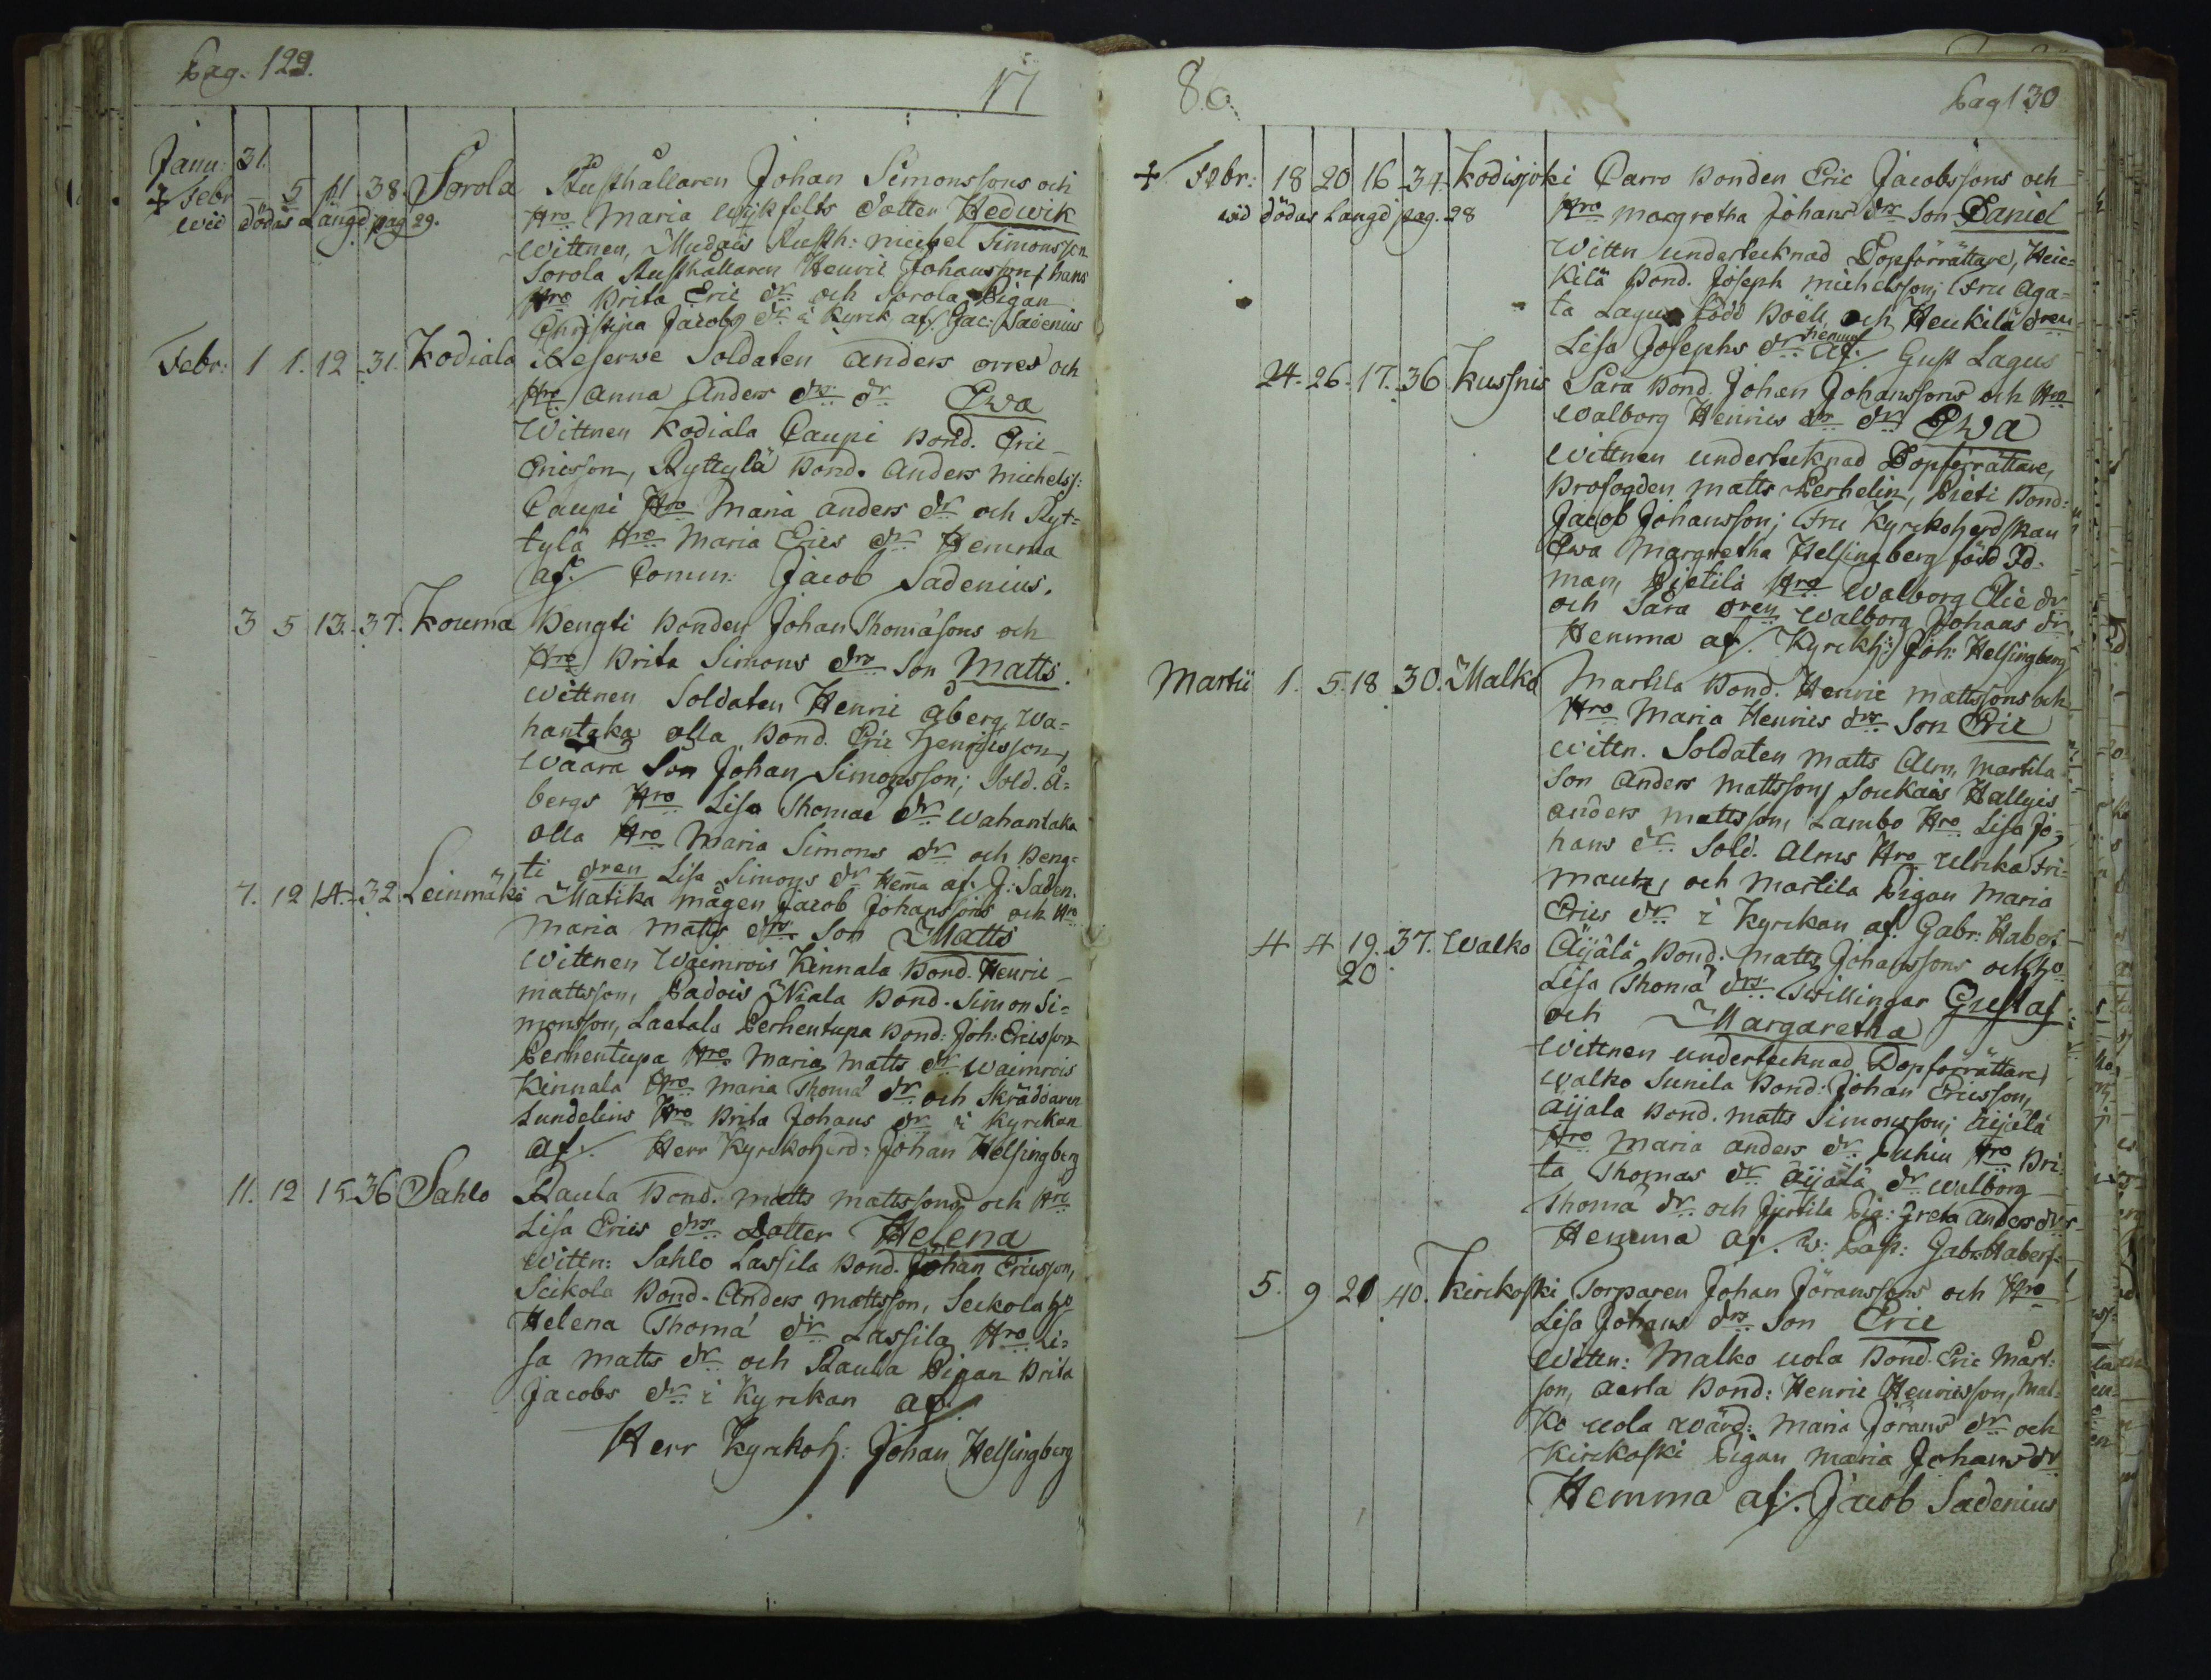 pag. 129.
17
Janu: 31.
‡ Febr - 5 11. 38. Sorola Rusthållaren Johan Simonssons och
wid dödas Längd pag 29.
Hro Maria Wijkfelts dotter Hedwik
Wittnen, Mudais Rusth: Michel Simonsson
Sorola Rusthållaren Henric Johansson, hans
Hro Brita Eric dr och Sorola Pigan
Christina Jacobs dr i Kyrck. af. Jac: Sadenius
Febr: 1 1. 12 31. Kodiala Reserwe Soldaten Anders orres och
Hro Anna Anders drs dr Ewa
Wittnen Kodiala Caupi Bond. Eric
Ericsson, Ryttylä Bond. Anders Michelss:
Caupi Hro Maria Anders dr och Ryt=
tylä Hro Maria Erics dr Hemma
af. Comm: Jacob Sadenius.
3 5 13. 37. Kouma Bengti Bonden Johan Thomäsons och
Hro Brita Simons drs Son Matts.
Wittnen Soldaten Henric Åberg, Wa=
hantaka olla Bond. Eric Henricsson,
Waara Son Johan Simonsson; Sold. Å=
bergs Hro Lisa Thomæ dr Wahantaka
olla Hro Maria Simons dr och Beng=
ti dren Lisa Simons dr Hem̄a af. J: Saden.
7. 12 14. 32 Leinmäki Matika mågen Jacob Johanssons och Hro
Maria Matts drs Son Matts
Wittnen Waimrois Kinnala Bond. Henric
Mattsson, Padois Niala Bond. Simon Si=
monsson, Laetala Perhentupa Bond: Joh: Ericsson
Perhentupa Hro Maria Matts dr Waimrois
Kinnala Hro Maria Thomä dr och Skräddaren
Lundelins Hro Brita Johans dr i Kyrckan
af. Herr Kyrckoherd: Johan Helsingberg
11. 12 15 36 Sahlo Raula Bond. Matts Mattssons och Hro
Lisa Erics drs Dotter Helena
Wittn: Sahlo Lassila Bond. Johan Ericsson,
Seikola Bond. Anders Mattsson, Seikola Ho
Helena Thomä dr Lassila Hro Li=
sa Matts dr och Raula Pigan Brita
Jacobs dr i Kyrckan af.
Herr Kyrckoh: Johan Helsingberg
80.
pag 130
‡ Febr: 18 20 16 34. Kodisjoki Carro Bonden Eric Jacobssons och
wid dödas Längd pag. 28
Hro Margretha Johans drs Son Daniel
Wittn undertecknad Dopförrättare, Heic=
kilä Bond. Joseph Michelsson; Fru Aga=
ta Lagus född Böck, och Heickilä dren
Lisa Josephs dr Hemma af. Gust Lagus
24. 26. 17. 36 Kussnis Sara Bond. Johan Johanssons och Hro
Walborg Henrics drs dr Ewa
Wittnen undertecknad Dopförrättare,
Brofogden Matts Perhelin, Pieti Bond:
Jacob Johansson; Fru Kyrckoherdskan
Ewa Margretha Helsingberg född Id-
man, Hietila Hro Walborg Elie dr
och Sara dren Walborg Johans dr,
Hemma af. Kyrckh: Joh: Helsingberg
Martii 1. 5. 18 30. Malko Martila Bond. Henric Mattssons och
Hro Maria Henrics drs Son Eric
Wittn. Soldaten Matts Alm, Martila
Son Anders Mattsson, Soukais Hallgis
Anders Mattsson, Lambo Hro Lisa Jo=
hans dr Sold. Alms Hro Ulrika Fri=
mantz och Martila Pigan Maria
Erics dr i Kyrckan af. Gabr: Haberf
4 4 19. 37. Walko Äijälä Bond. Matts Johanssons och Ho
20
Lisa Thomä drs Twillingar Gustaf
och Margaretha
Wittnen undertecknad Dopförrättare,
Walko Sunila Bond: Johan Ericsson,
Äijälä Bond. Matts Simonsson; Äijälä
Hro Maria Anders dr Puhiu Hro Bri=
ta Thomas dr Äijälä dr Walborg
Thomä dr och Jertila Pig: Greta Anders dotr
Hemma af. w: Past: Gabr: Haberf=
5. 9 21 40. Kirckoski Torparen Johan Jöranssons och Hro
Lisa Johans drs Son Eric
Wittn: Malko uola Bond. Eric Mårt:
son, Aerla Bond: Henric Henricsson, Mal=
ko uola wärd: Maria Jörans dr och
Kirckoski Pigan Maria Johans dr
Hemma af. Jacob Sadenius